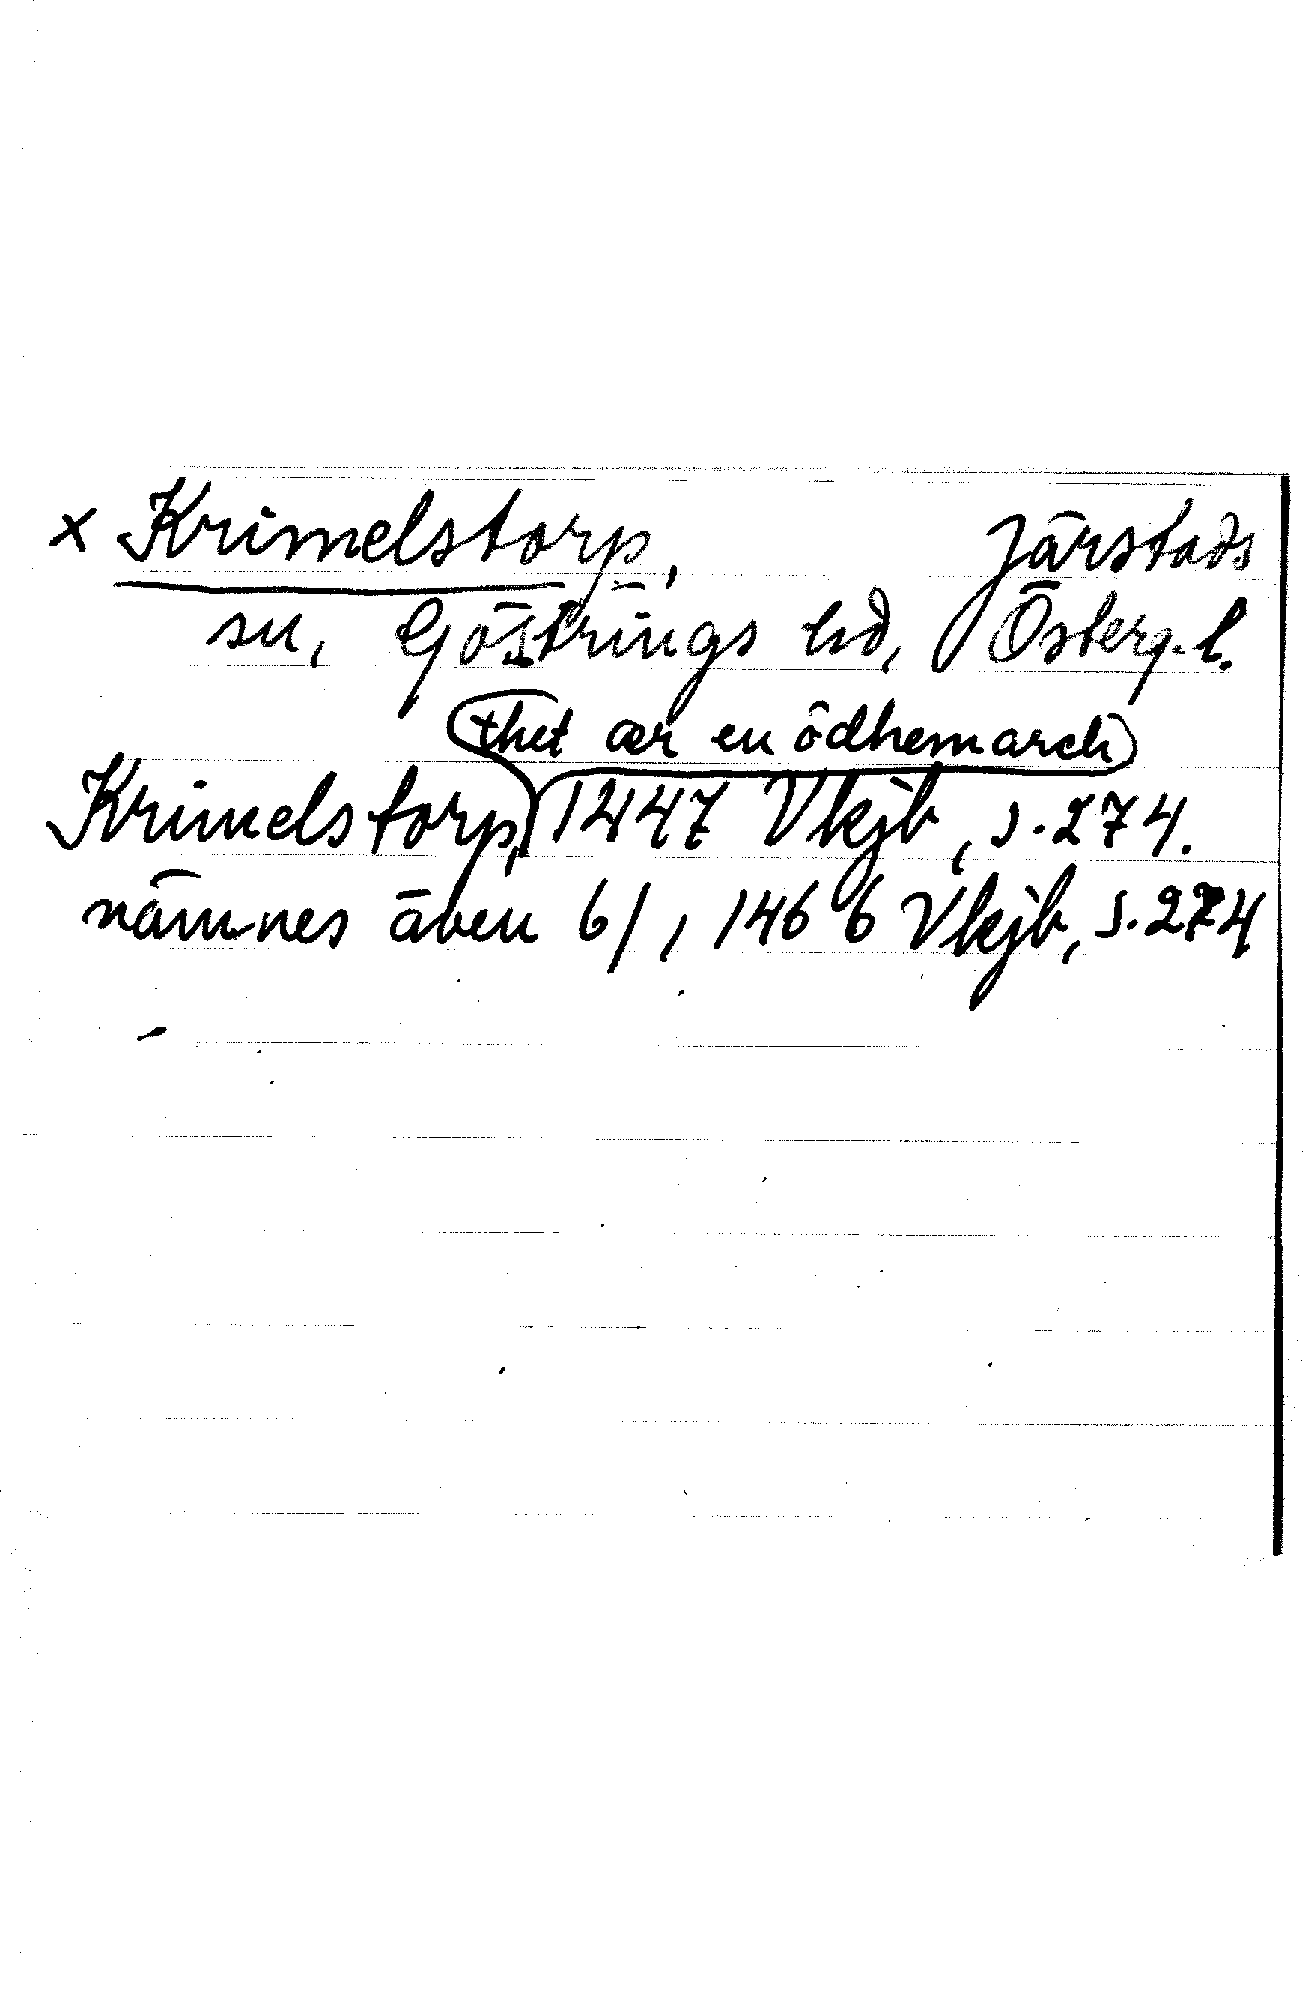 x Krimelstorp, Järstads
sn, Göstrings hd, Österg. l.
(thet ær en ödhemarch)
Krimelstorp, 1447 Vkjb, s. 274.
nämnes även 6/1, 1466 Vkjb, s. 274